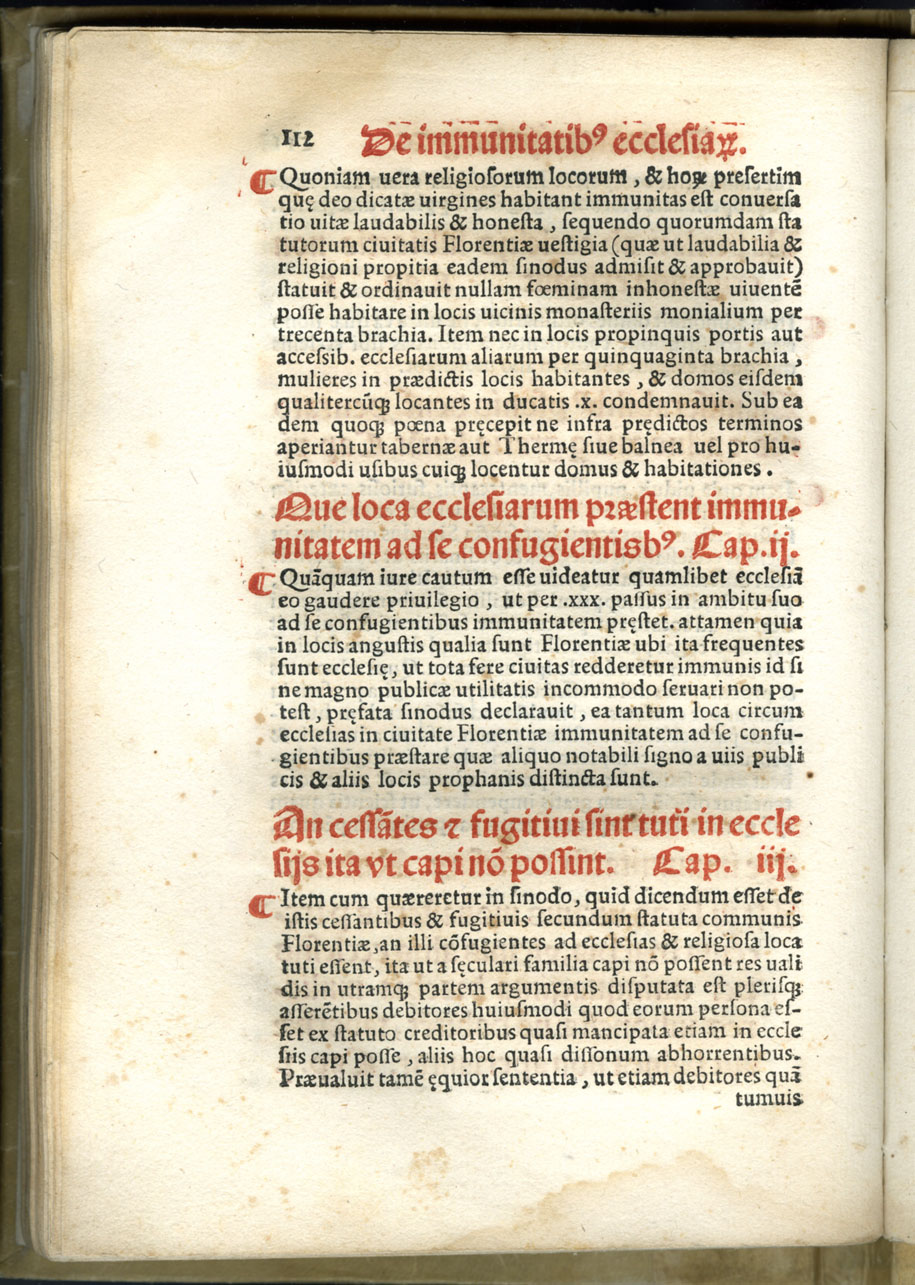 112 De immunitatibꝰ ecclesiaꝝ.
¶ Quoniam uera religiosorum locorum, & hoꝝ presertim
quę deo dicatæ uirgines habitant immunitas est conuersa
tio uitæ laudabilis & honesta, sequendo quorumdam sta
tutorum ciuitatis Florentiæ uestigia (quæ ut laudabilia &
religioni propitia eadem sinodus admisit & approbauit)
statuit & ordinauit nullam fœminam inhonestæ uiuentē
posse habitare in locis uicinis monasteriis monialium per
trecenta brachia. Item nec in locis propinquis portis aut
accessib. ecclesiarum aliarum per quinquaginta brachia,
mulieres in prædictis locis habitantes, & domos eisdem
qualitercūqꝫ locantes in ducatis .x. condemnauit. Sub ea
dem quoqꝫ pœna pręcepit ne infra prędictos terminos
aperiantur tabernæ aut Thermę siue balnea uel pro hu-
iusmodi usibus cuiqꝫ locentur domus & habitationes.
Que loca ecclesiarum præstent immu-
nitatem ad se confugientisbꝰ. Cap.ij.
¶ Quāquam iure cautum esse uideatur quamlibet ecclesiā
eo gaudere priuilegio, ut per .xxx. passus in ambitu suo
ad se confugientibus immunitatem pręstet. attamen quia
in locis angustis qualia sunt Florentiæ ubi ita frequentes
sunt ecclesię, ut tota fere ciuitas redderetur immunis id si
ne magno publicæ utilitatis incommodo seruari non po-
test, pręfata sinodus declarauit, ea tantum loca circum
ecclesias in ciuitate Florentiæ immunitatem ad se confu-
gientibus præstare quæ aliquo notabili signo a uiis publi
cis & aliis locis prophanis distincta sunt.
An cessātes ⁊ fugitiui sint tuti in eccle
sijs ita vt capi nō possint. Cap. iij.
¶ Item cum quæreretur in sinodo, quid dicendum esset de
istis cessantibus & fugitiuis secundum statuta communis
Florentiæ, an illi cōfugientes ad ecclesias & religiosa loca
tuti essent, ita ut a sęculari familia capi nō possent res uali
dis in utramqꝫ partem argumentis disputata est plerisqꝫ
asserētibus debitores huiusmodi quod eorum persona es-
set ex statuto creditoribus quasi mancipata etiam in eccle
siis capi posse, aliis hoc quasi dissonum abhorrentibus.
Præualuit tamē ęquior sententia, ut etiam debitores quā
tumuis